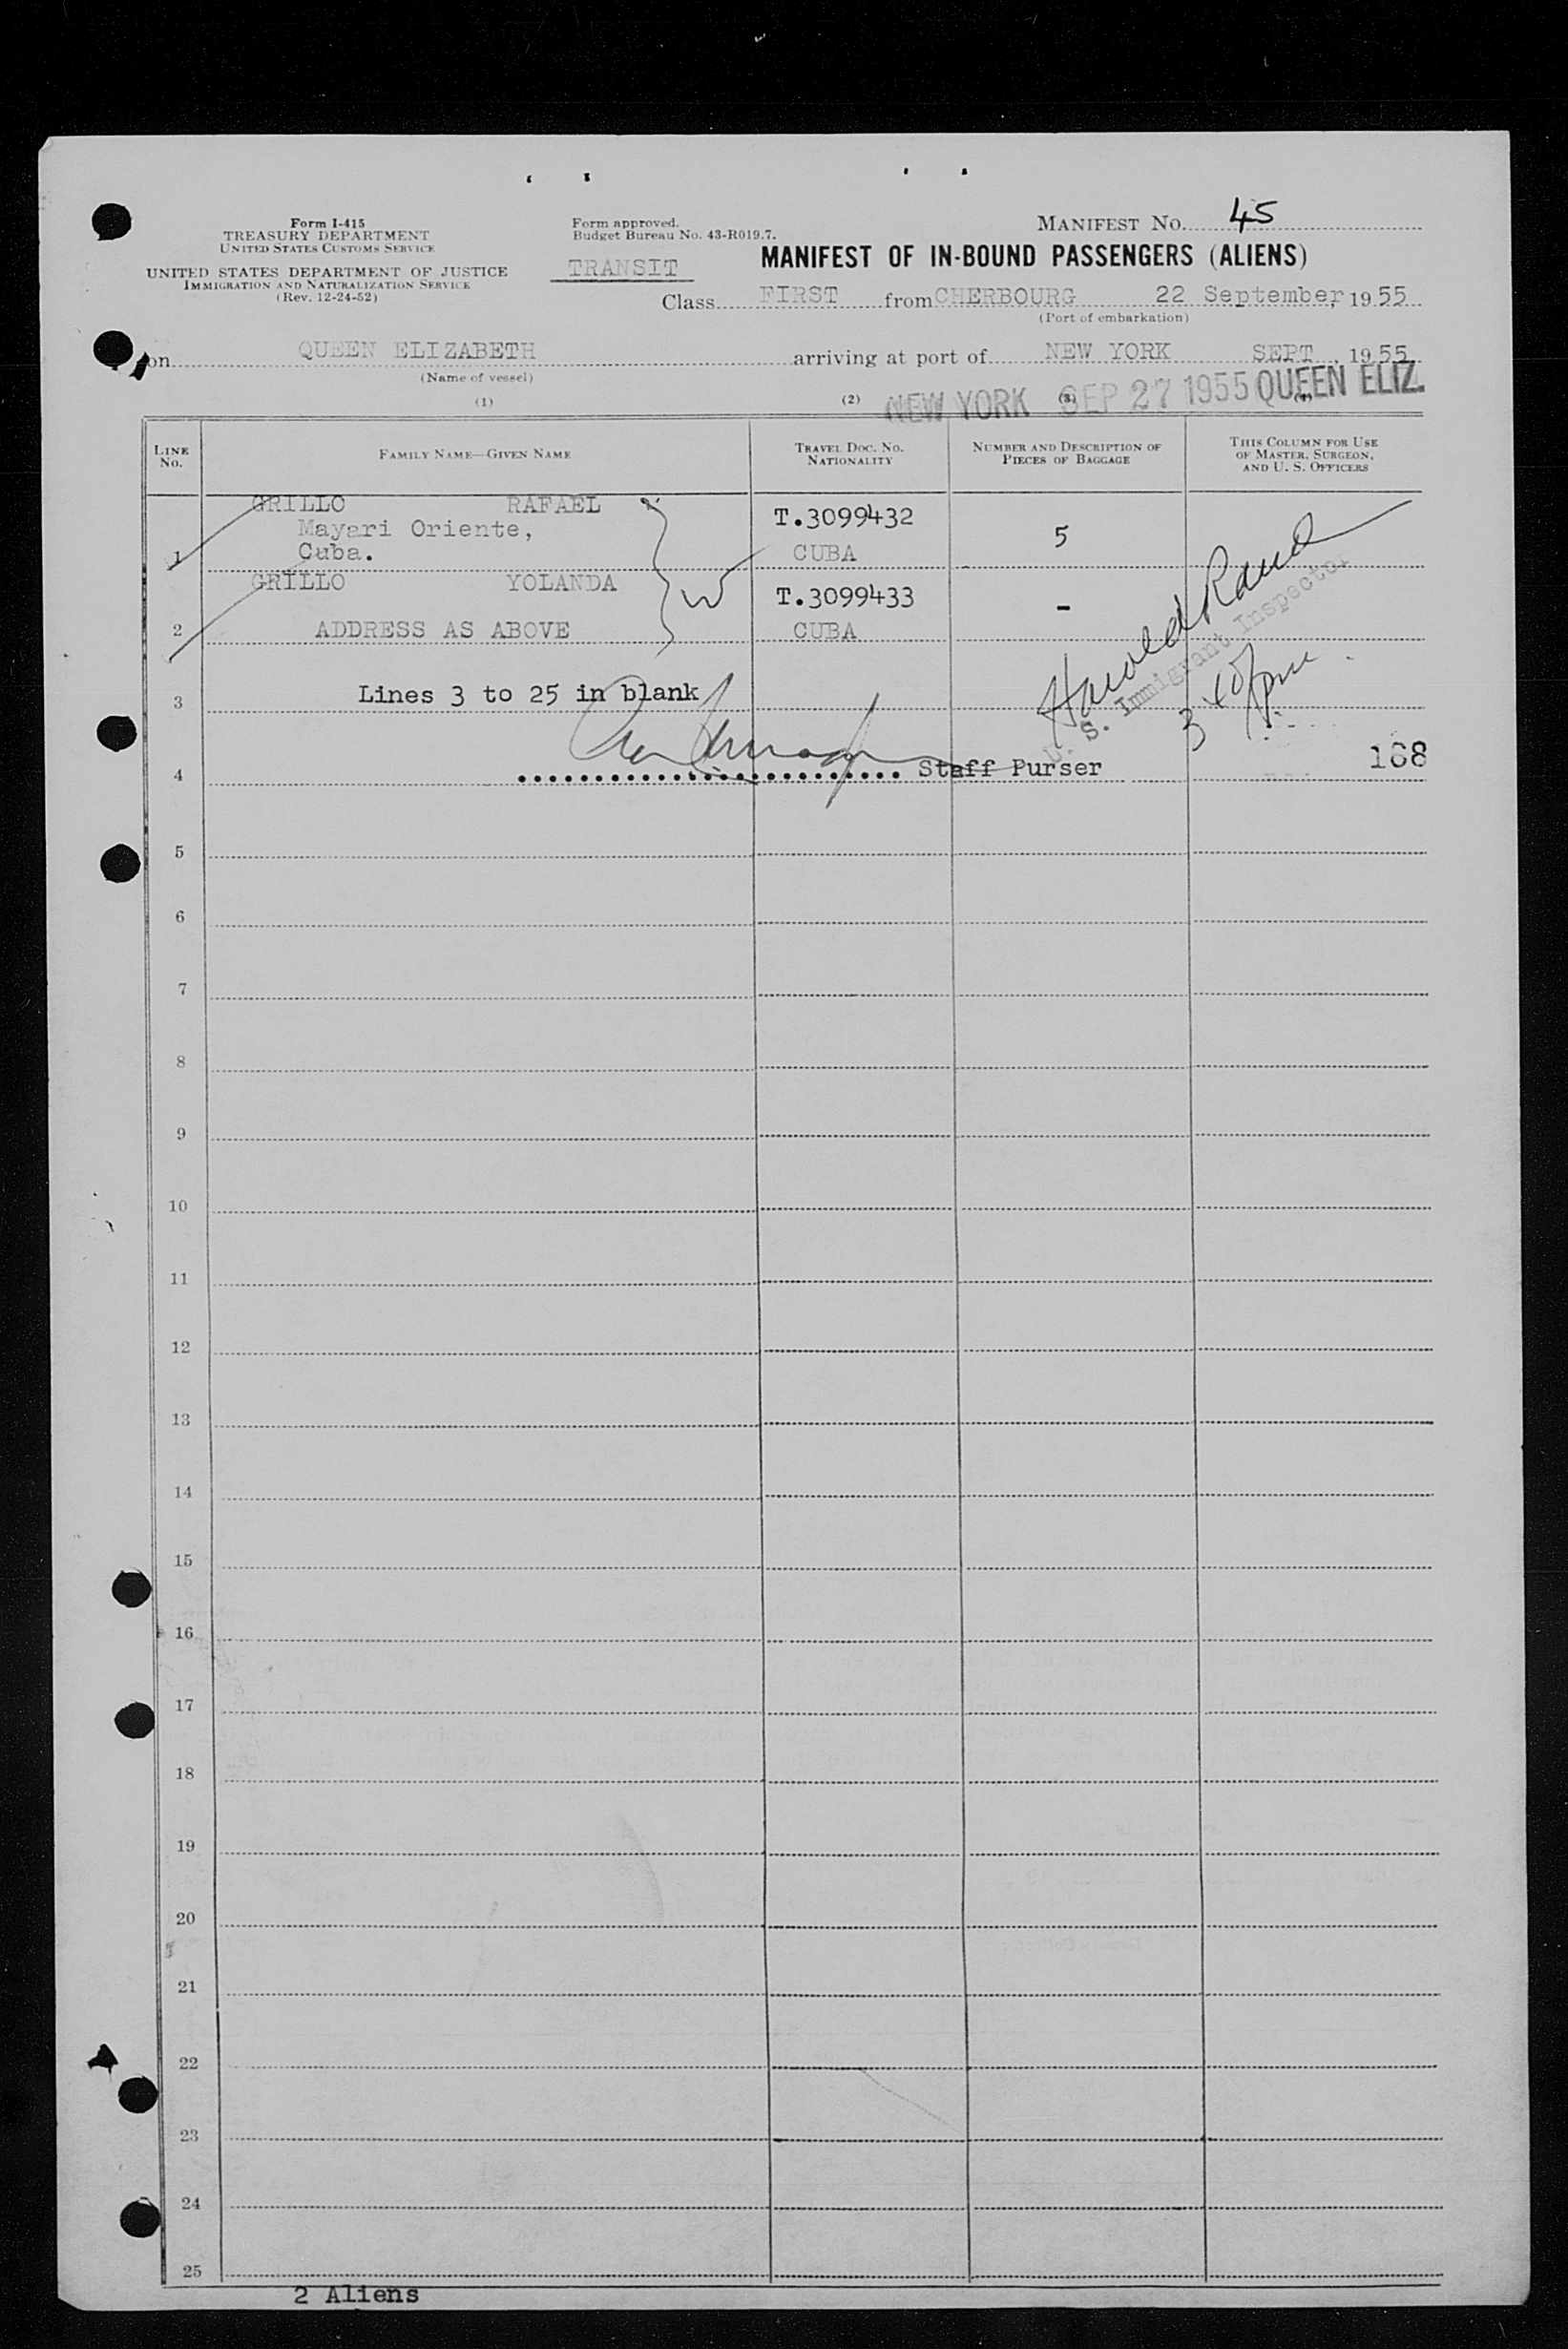 Form I-415
TREASURY DEPARTMENT
UNITED STATES CUSTOMS SERVICE
UNITED STATES DEPARTMENT OF JUSTICE
IMMIGRATION AND NATURALIZATION SERVICE
(Rev. 12-24-52)
Form approved.
Budget Bureau No. 43-R019.7.
MANIFEST NO. 45
TRANSIT
MANIFEST OF IN-BOUND PASSENGERS (ALIENS)
Class FIRST from CHERBOURG 22 September, 1955
(Port of embarkation)
on QUEEN ELIZABETH arriving at port of NEW YORK SEPT , 1955
(Name of vessel)
NEW YORK SEP 27 1955 QUEEN ELIZ.
(1) (2) (3) (4)
LINE NO. FAMILY NAME—GIVEN NAME TRAVEL DOC. NO. NATIONALITY NUMBER AND DESCRIPTION OF PIECES OF BAGGAGE THIS COLUMN FOR USE OF MASTER, SURGEON, AND U. S. OFFICERS
GRILLO RAFAEL T.3099432
Mayari Oriente, 5
1 Cuba. CUBA
GRILLO YOLANDA T.3099433 -
2 ADDRESS AS ABOVE CUBA
W
Harold
U. S. Immigrant Inspector
3 40 pm
3 Lines 3 to 25 in blank
4 Staff Purser
168
5
6
7
8
9
10
11
12
13
14
15
16
17
18
19
20
21
22
23
24
25
2 Aliens